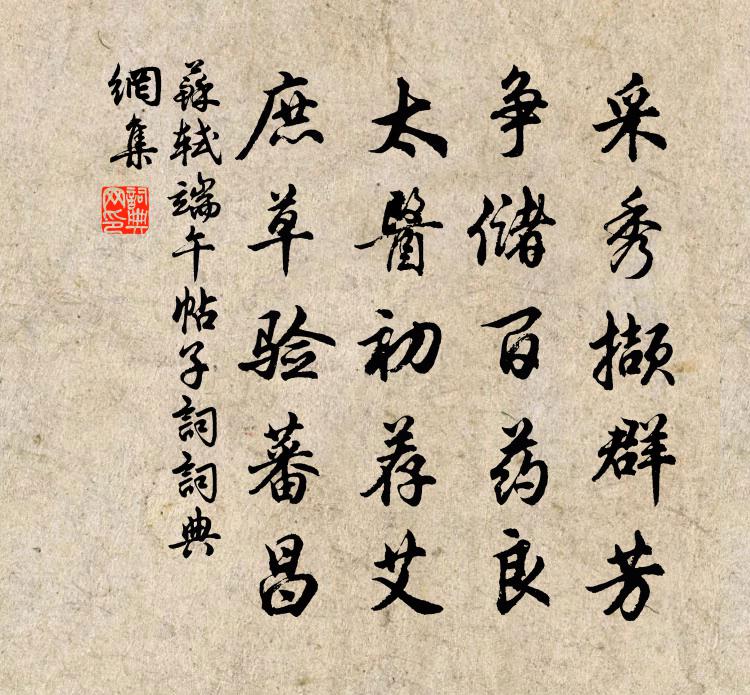 采秀撷群芳
争储百药良
太醫初荐艾
庶草验蕃昌
蘇軾端午帖子詞詞典
網集
詞典网印